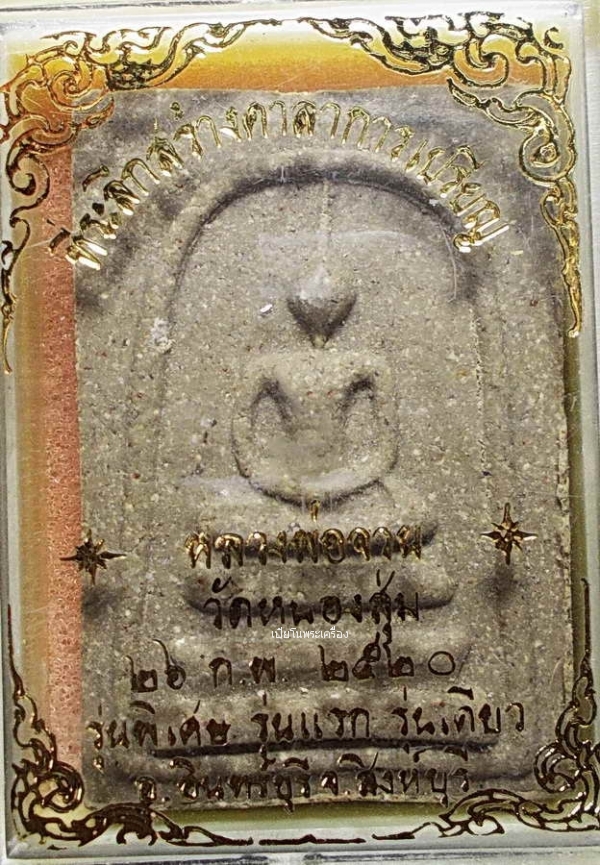 ที่ระลึกสร้างศาลาการเปรียญ
หลวงพ่อจวน
วัดหนองสุ่ม
เปี๊ยโนพระเครื่อง
๒๖ ก.พ. ๒๕๒๐
รุ่นพิเศษ รุ่นแรก รุ่นเดียว
อ.อินทร์บุรี จ.สิงห์บุรี